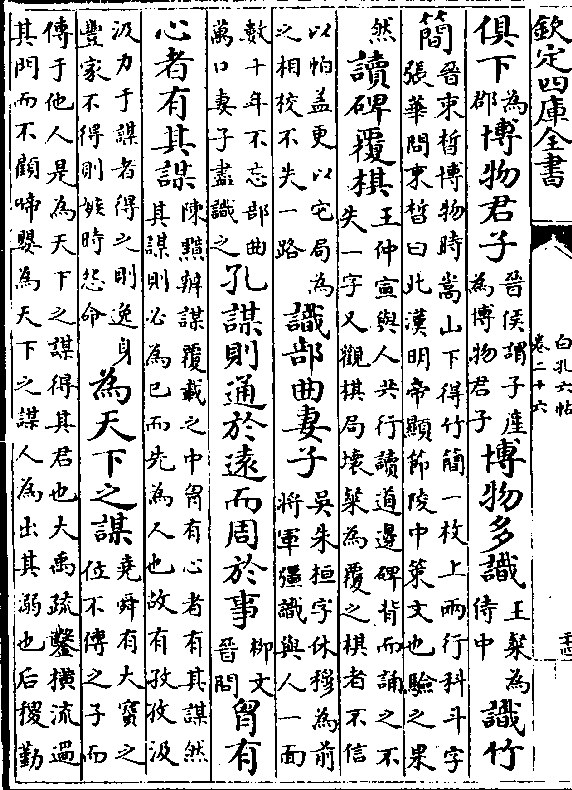 欽定四庫全書
白孔六帖
卷二十六
俱下
為
郡
博物君子
晉侯謂子產
為博物君子
博物多識
王粲為
侍中
識竹
簡
晉束晳博物時嵩山下得竹簡一枚上兩行科斗字
張華問束晳曰此漢明帝顯節陵中策文也驗之果
然
讀碑覆棋
王仲宣與人共行讀道邊碑背而誦之不
失一字又觀棋局壞粲為覆之棋者不信
以帕盖更以宅局為
之相校不失一路
識部曲妻子
吳朱桓字休穆為前
將軍彊識與人一面
數十年不忘部曲
萬口妻子盡識之
孔謀則通於遠而周於事
柳文
晉問
胷有
心者有其謀
陳黯辨謀覆載之中胷有心者有其謀然
其謀則必為已而先為人也故有孜孜汲
汲力于謀者得之則逸身
豐家不得則嫉時怨命
為天下之謀
堯舜有大寳之
位不傳之子而
傳于他人是為天下之謀得其君也大禹疏鑿橫流過
其門而不顧啼嬰為天下之謀人為出其溺也后稷勤